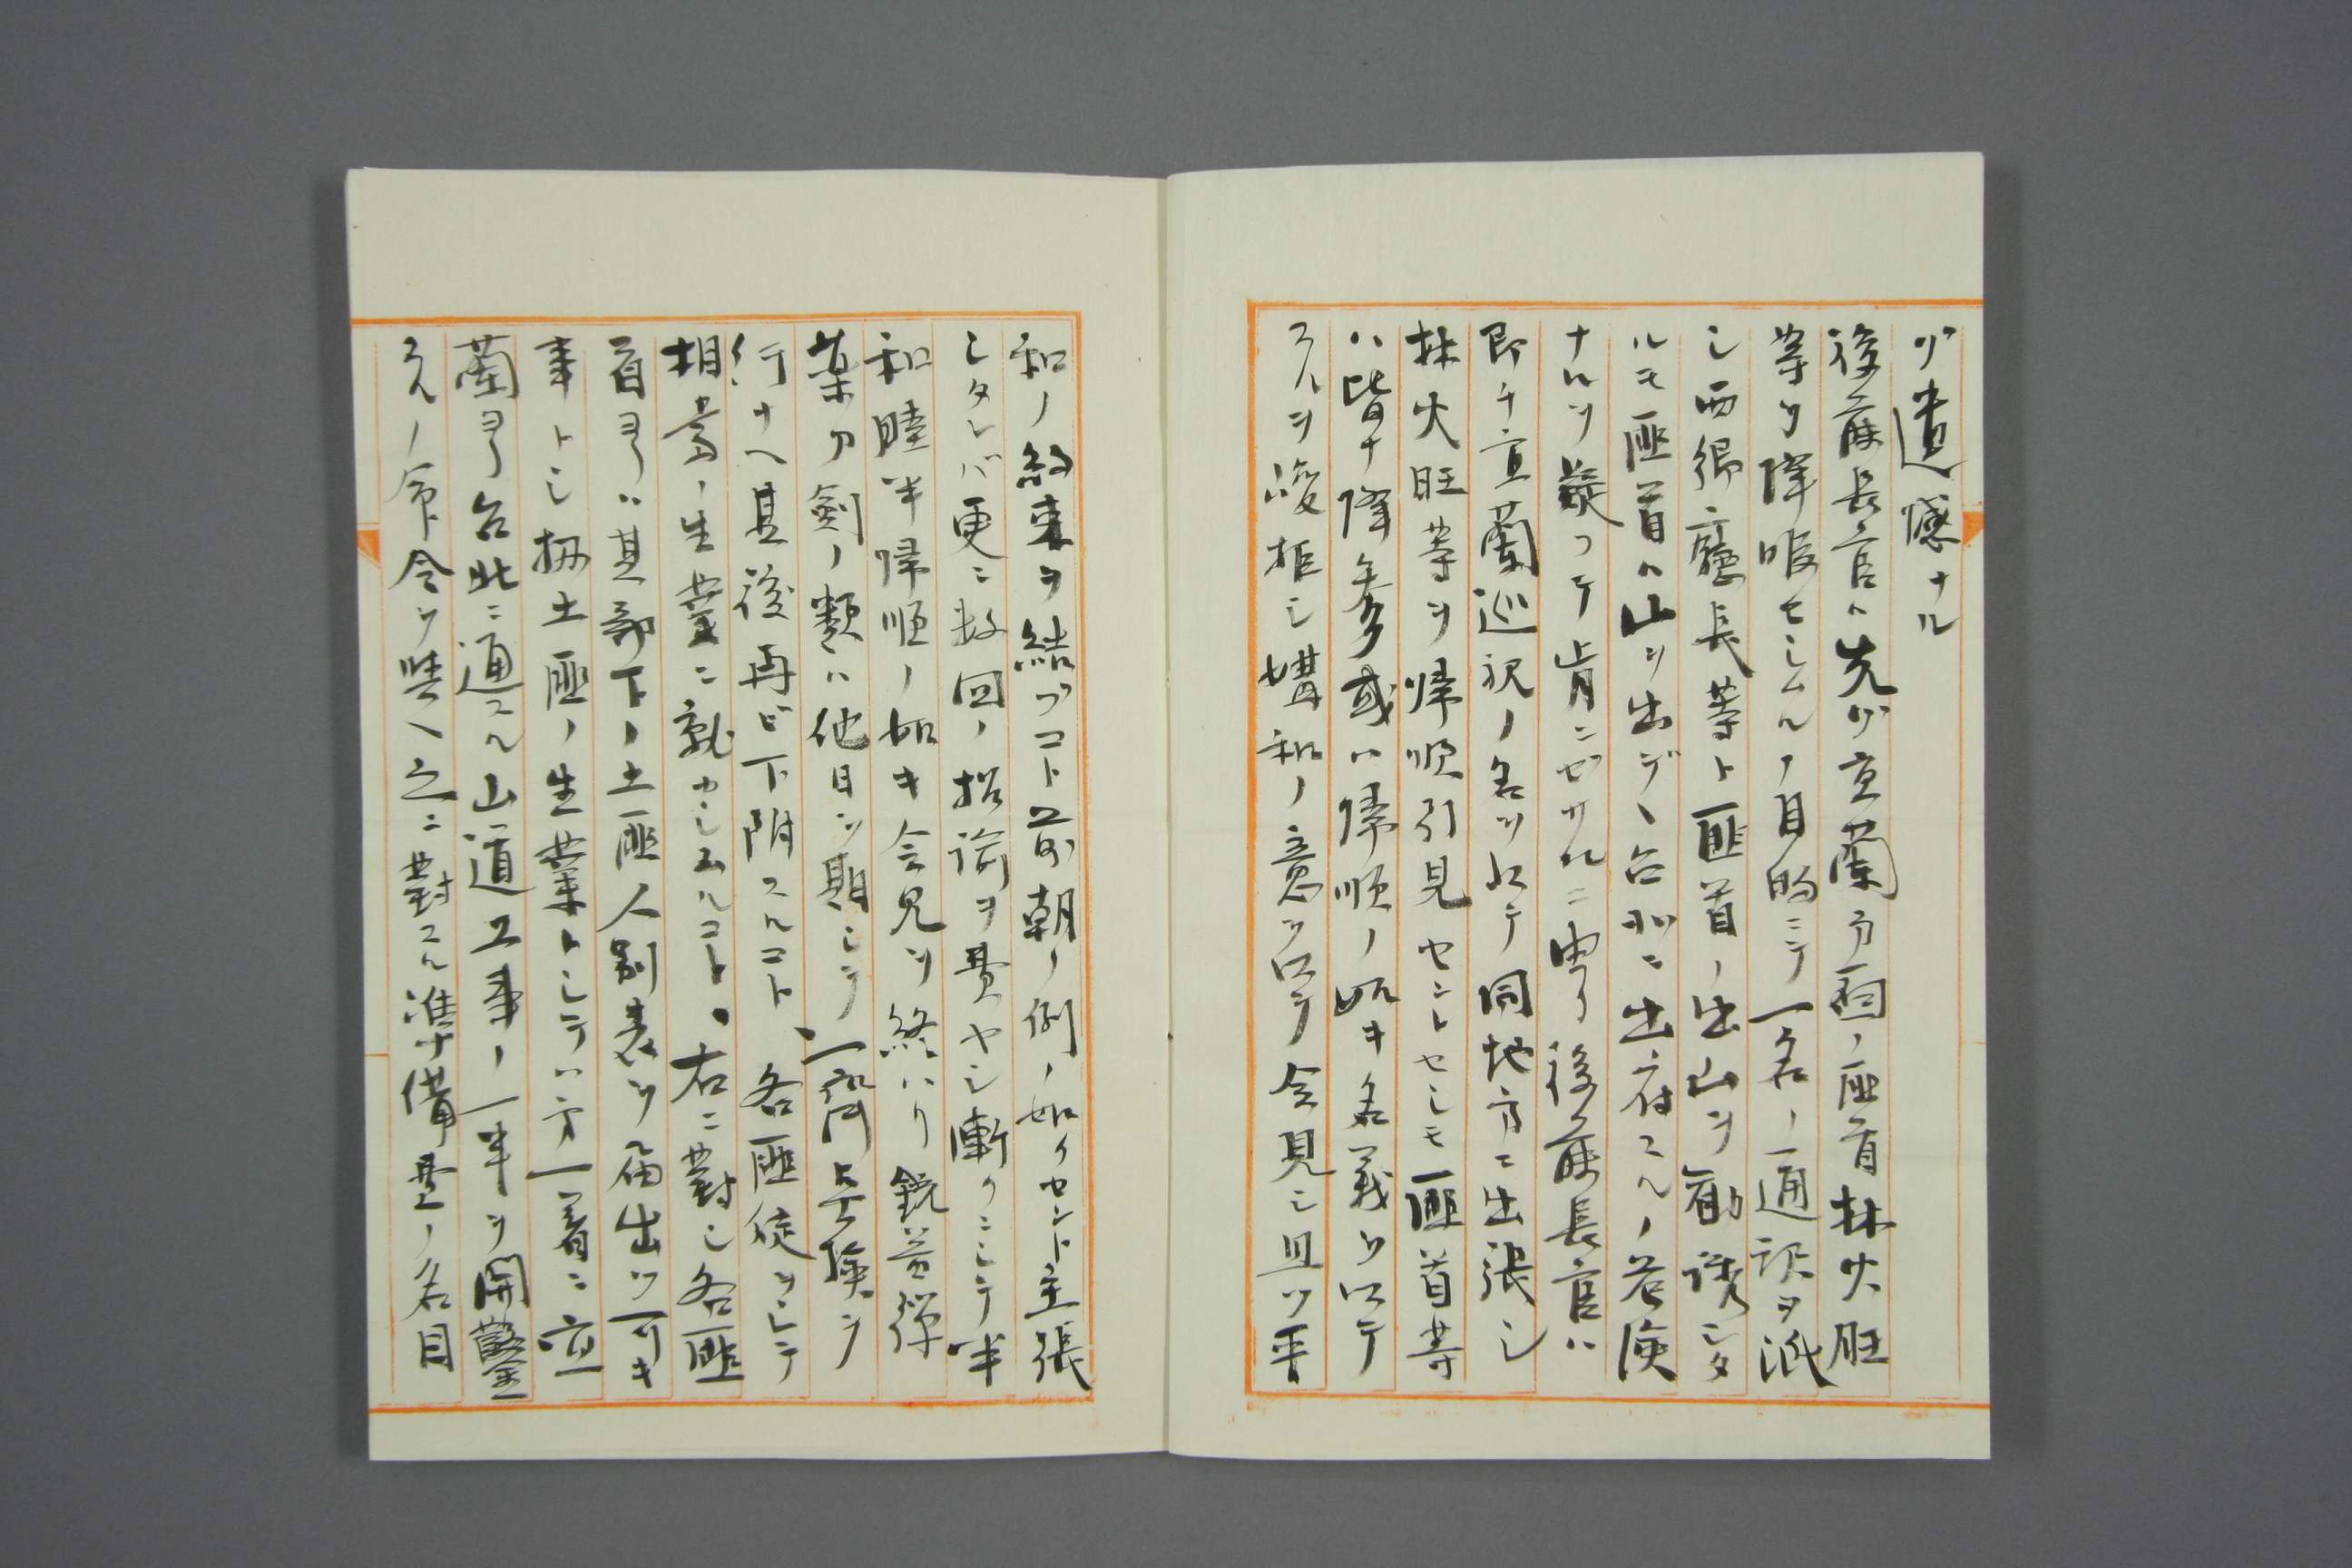 ガ遺憾ナル
後藤長官ハ先ヅ宜蘭方面ノ匪首林火旺
等ヲ降服セシムルノ目的ニテ一名ノ通訳ヲ派
シ西郷廳長等ト匪首ノ出山ヲ勧誘シタ
ルモ匪首ハ山ヲ出デヽ台北ニ出府スルノ危険
ナルヲ疑フテ肯ンゼザルニ由リ後藤長官ハ
即チ宜蘭巡視ノ名ヲ以テ同地方ニ出張シ
林火旺等ヲ帰順引見セントセシモ匪首等
ハ皆ナ降参或ハ帰順ノ如キ名義ヲ以テ
スルヲ峻拒シ媾和ノ意ヲ以テ会見シ且ツ平
和ノ約束ヲ結ブコト前朝ノ例ノ如クセント主張
シタレバ更ニ数回ノ招諭ヲ費ヤシ漸クニシテ半
和睦半帰順ノ如キ会見ヲ終ハリ銃器弾
薬刀劍ノ類ハ他日ヲ期シテ一齊点検ヲ
行ナヘ其後再ビ下附スルコト、各匪徒ヲシテ
相當ノ生業ニ就カシムルコト、右ニ對シ各匪
首ヨリハ其部下ノ土匪人別表ヲ届出ヅ可キ
事トシ扨土匪ノ生業トシテハ方一着ニ宜
蘭ヨリ台北ニ通スル山道工事ノ一半ヲ開鑿
スルノ命令ヲ與ヘ之ニ對スル準備費ノ名目